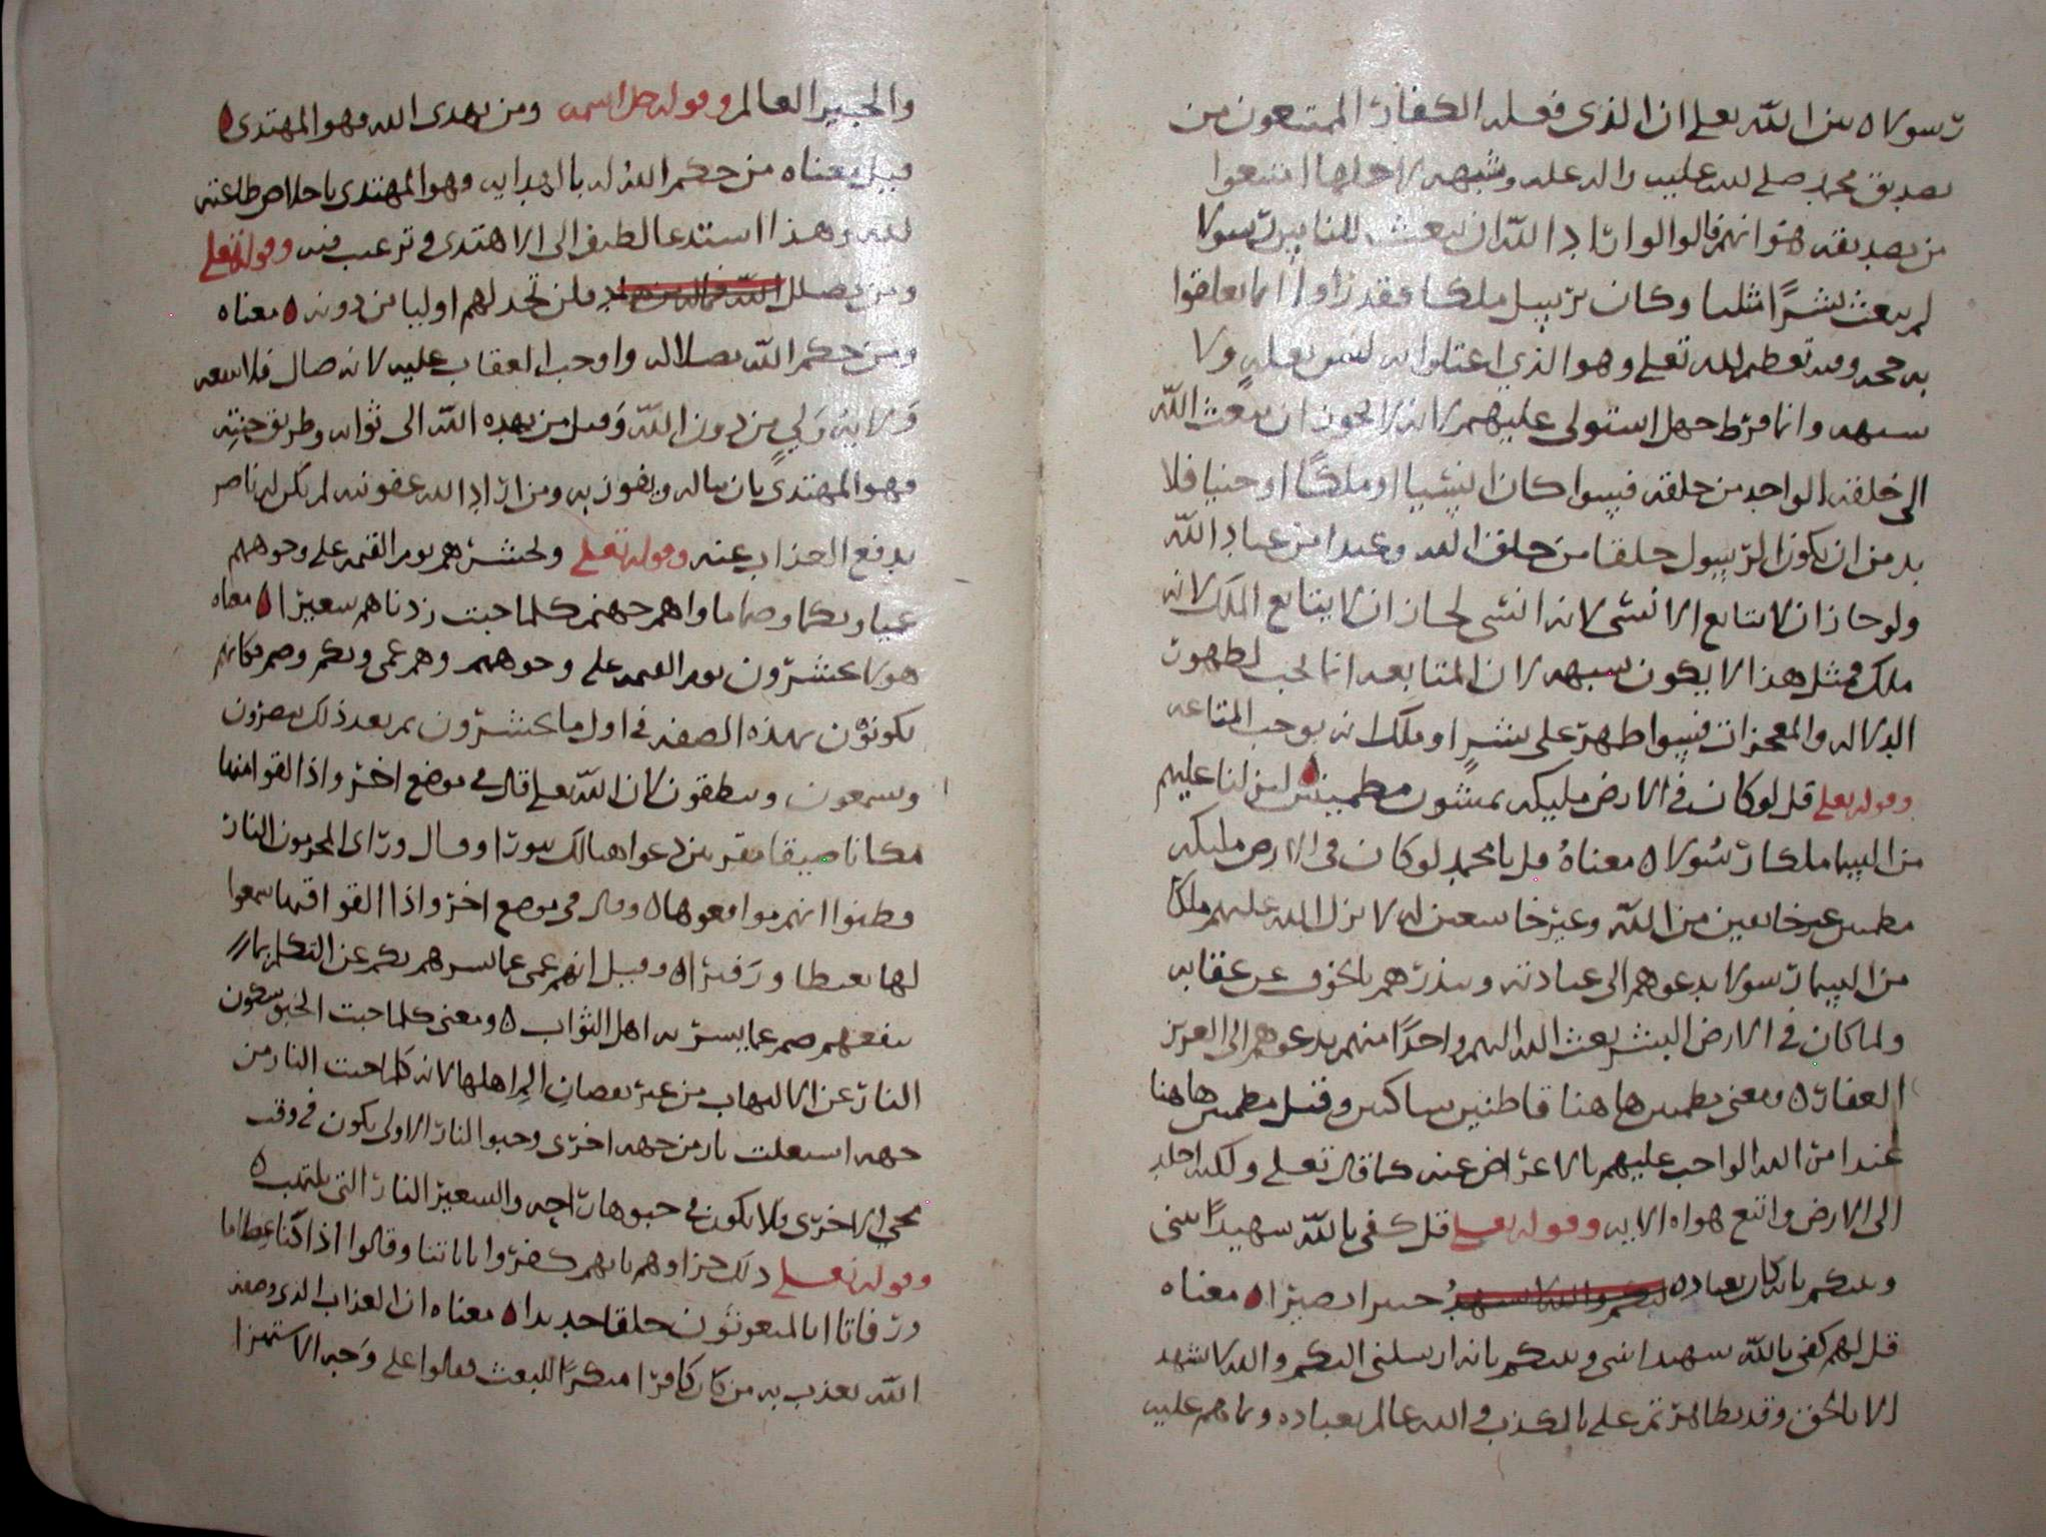 رسولا ه بين الله تعلى ان الذي فعله الكفار الممتنعون من
تصديق محمد صلى الله عليه واله عليه وشبهه لاجلها امتنعوا
من تصديقه هو انهم قالوا لو اراد الله ان يبعث للنا بين رسولا
لم يبعث بشرًا مثلنا وكان يرسل ملكا فقد راوا انما تعلقوا
به حجه وفيه تعظيم لله تعلى وهو الذي اعتلوا به ليس بعله ولا
شبهه وانما فرط جهل استولى عليهم لانه لا يجوز ان يبعث الله
الى خلقه الواحد من خلقه فسوا كان انسيا او ملكًا او جنيا فلا
بد من ان يكون الرسول خلقا من خلق الله وعبدا من عباد الله
ولو جاز ان لا يتابع الانسي لانه انسي لجاز ان لا يتابع الملك لانه
ملك فمثل هذا لا يكون شبهه لان المتابعه انما تجب لظهور
الدلاله والمعجزات فسوا ظهر على بشرٍ او ملك انه يوجب المتاعه
وقوله تعلى قل لو كان في الارض مليكه يمشون مطمينين لنزلنا عليهم
من السما ملكا رسُولا ه معناهُ قل يا محمد لو كان في الارض مليكه
مطمين غير خايفين من الله وغير خاشعين له لا نزل الله عليهم ملكا
من السما رسولا يدعوهم الى عبادته وينذرهم بالخوف عن عقابه
ولما كان في الارض البشر بعث الله اليهم واحدًا منهم يدعوهم الى العزيز
العفار ه ومعنى مطمين هاهنا قاطنين ساكنين وقيل مطمين هاهنا
عندا من الله الواجب عليهم بالاعراض عنه كما قال تعلى ولكنه اخلد
الى الارض واتبع هواه الايه وقوله تعلى قل كفى بالله شهيدًا بيني
وبينكم انه كان بعباده خبيرا بصيرا ه معناه
قل لهم كفى بالله شهيدا بيني وبينكم بانه ارسلني اليكم والله لا يشهد
الا بالحق وقد تظاهرتم على بالكذب والله عالم بعباده وما هم عليه
والخبير العالم وقوله جل اسمه ومن يهدى الله فهو المهتدى ه
قيل معناه من حكم الله له بالهدايه فهو المهتدى باخلاص طاعته
لله وهذا استدعا لطيف الى الاهتدى وترغيب فيه وقوله تعلى
ومن يضلل فلن تجد لهم اوليا من دونه ه معناه
ومن حكم الله بضلاله واوجب العقاب عليه لانه ضال فلا ينفعه
وَلاية وَليٍ من دون الله وَقيل من يهده الله الى ثوابه وطريق جنته
فهو المهتدى بان يناله ويفوز به ومن اراد الله عقوبته لم يكن له ناصر
يدفع العذاب عنه وقوله تعلى ونحشرهم يوم القيمه على وجوههم
عميا وبكما وصما ماواهم جهنم كلما خبت زدناهم سعيرا ه معناه
هولا يحشرون يوم القيمه على وجوههم وهم عمى وبكم وصم فكانهم
يكونون بهذه الصفه في اول ما يحشرون ثم بعد ذلك يبصرون
ويسمعون وينطقون لان الله تعلى قال في موضع اخر واذا القوا منها
مكانا ضيقا مقرنين دعوا هنالك ثبورا وقال وراى المجرمون النار
فظنوا انهم مواقعوها ه وقال في موضع اخر واذا القوا فيها سمعوا
لها تغيظا وزفيرا ه وقيل انهم عمى عما يسرهم بكم عن التكلم بما
ينفعهم صم عما يسر به اهل الثواب ه ومعنى كلما خبت الخبو سكون
النار عن الالتهاب من غير نقصان الم اهلها لانه كلما خبت النار من
جهه اشتعلت نار من جهه اخرى وخبو النار الاولى يكون في وقت
تجي الاخرى فلا يكون في خبوها راحه والسعير النار التي تلتهب ه
وقوله تعلى ذلك جزاوهم بانهم كفروا باياتنا وقالوا اذا كنا عظاما
ورفاتا انا لمبعوثون خلقا جديدا ه معناه ان العذاب الذي وصفه
الله يعذب به من كان كافرا منكرًا للبعث فقالوا على وجه الاستهزا